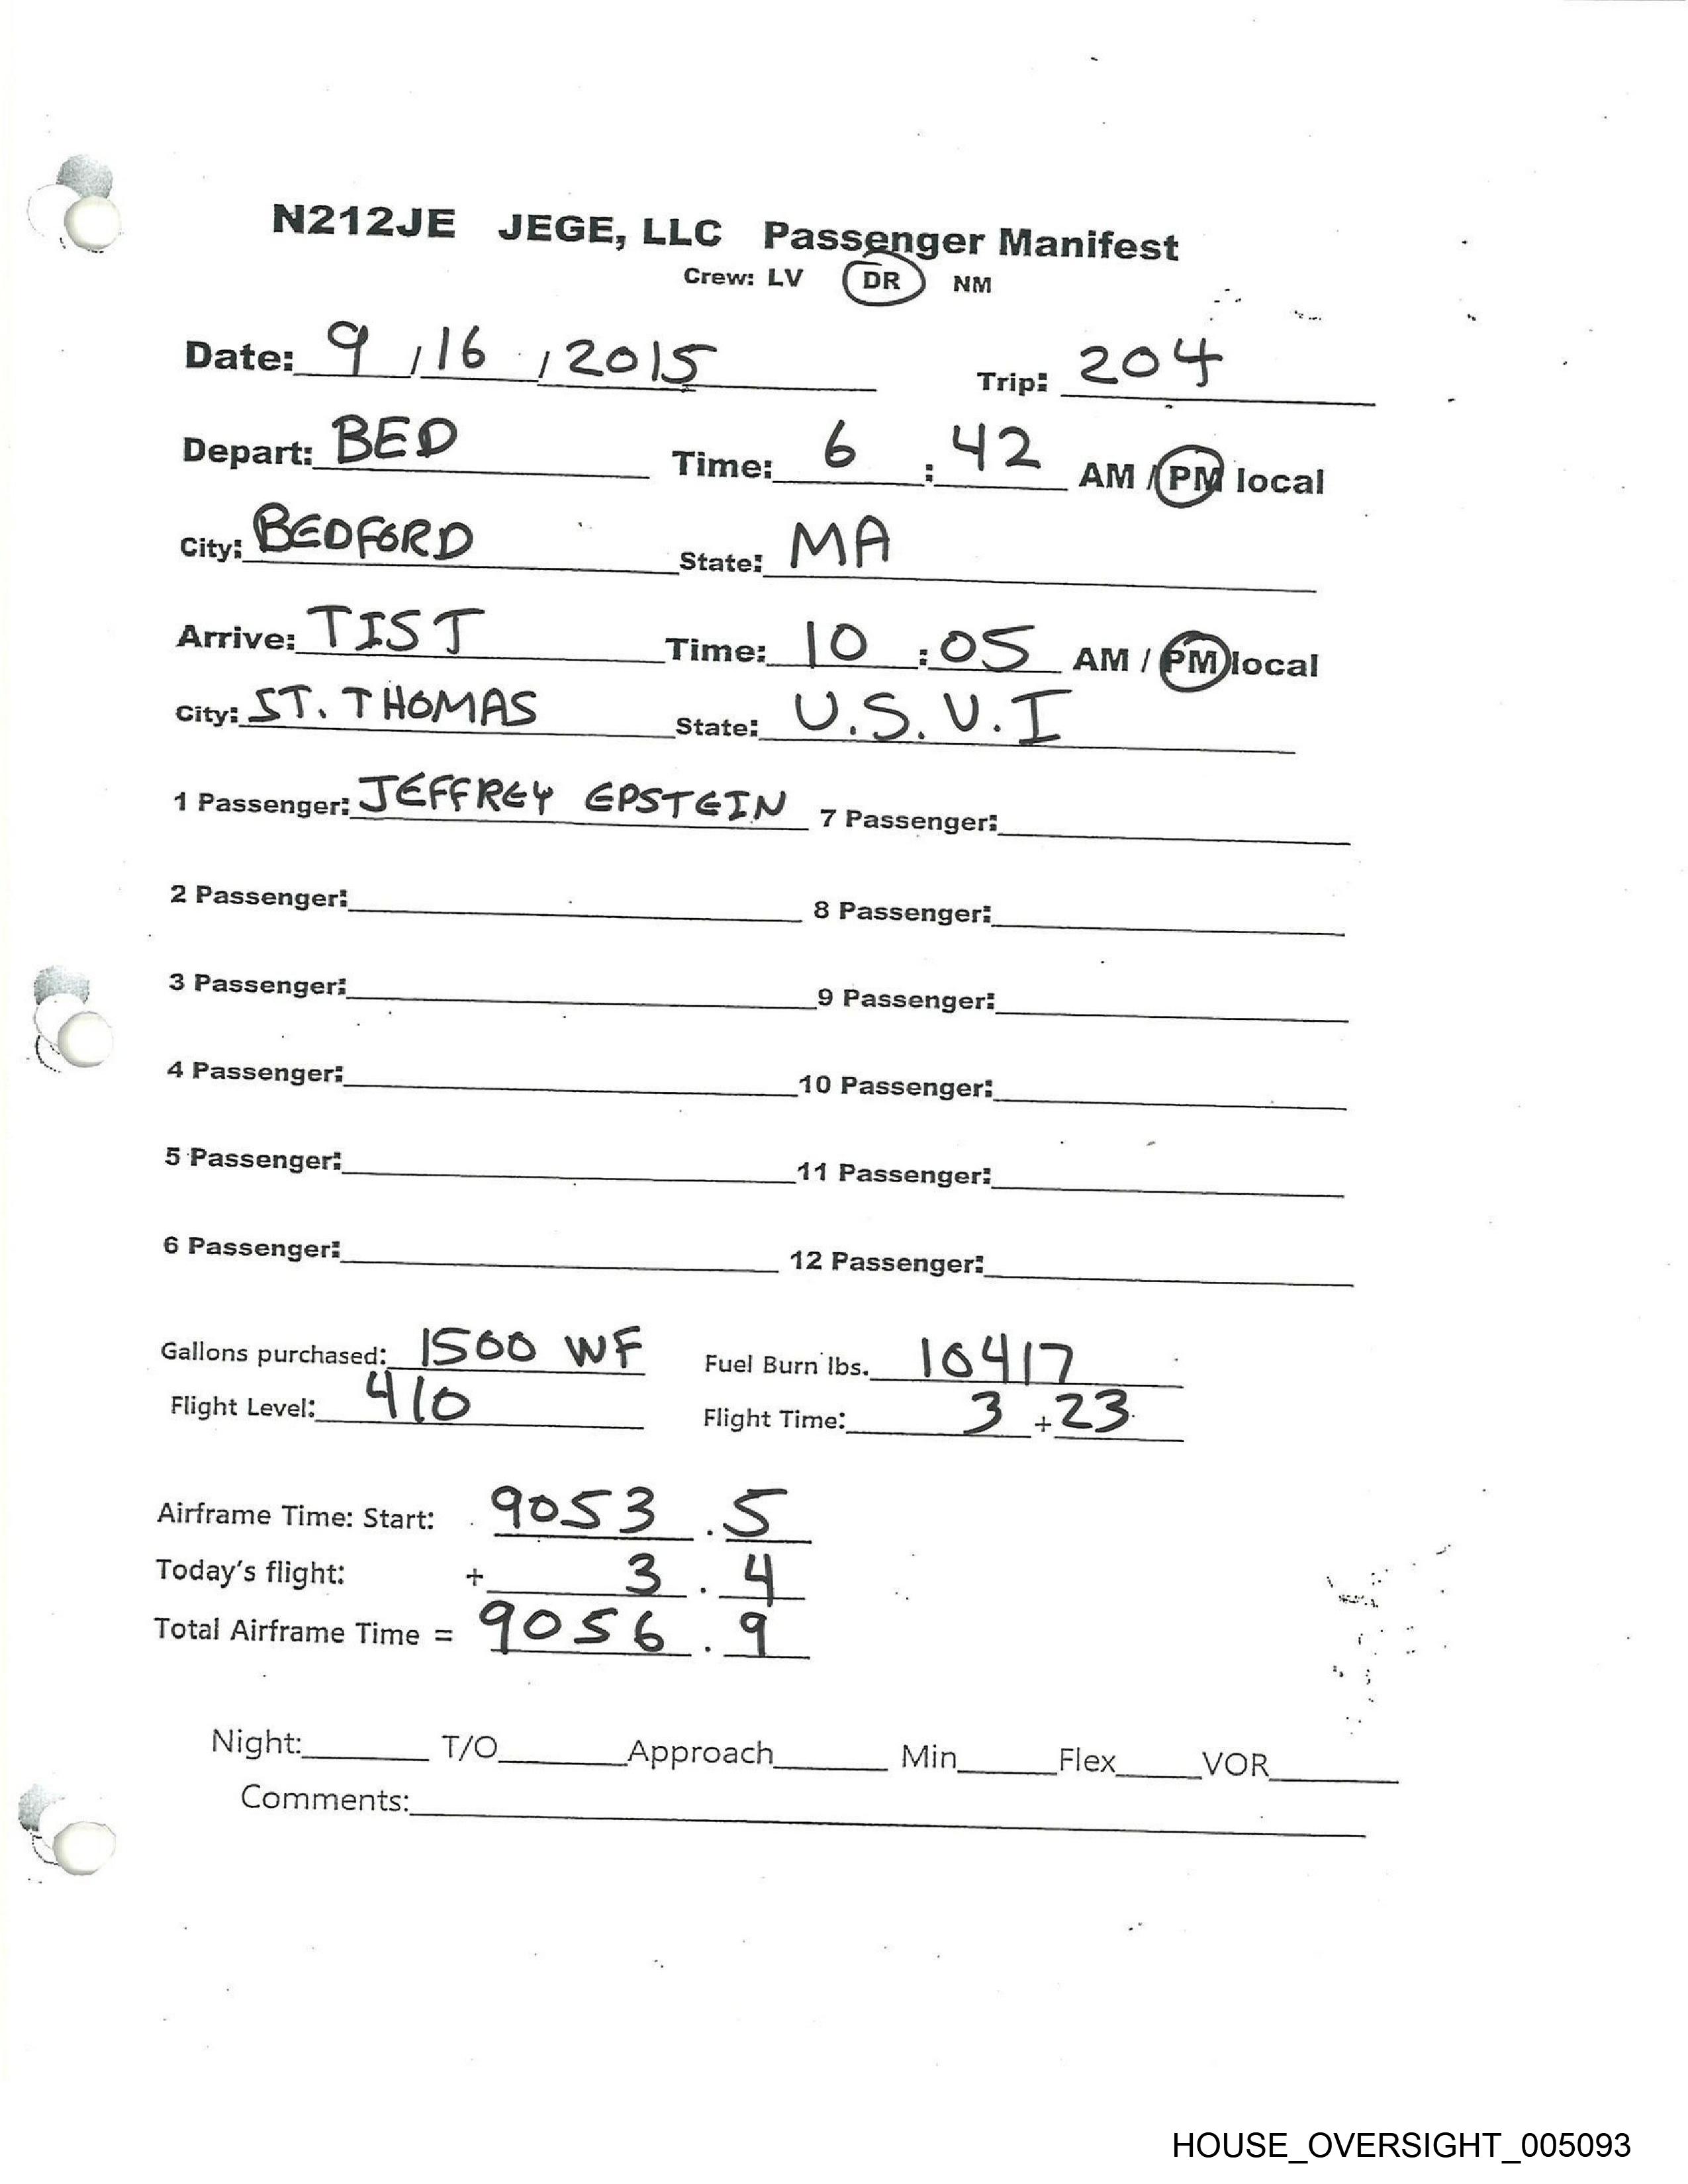 N212JE JEGE, LLC Passenger Manifest
Crew: LV DR NM
Date: 9 / 16 / 2015 Trip: 204
Depart: BED Time: 6 : 42 AM / PM local
City: BEDFORD State: MA
Arrive: TIST Time: 10 : 05 AM / PM local
City: ST. THOMAS State: U.S.V.I
1 Passenger: JEFFREY EPSTEIN 7 Passenger:
2 Passenger: 8 Passenger:
3 Passenger: 9 Passenger:
4 Passenger: 10 Passenger:
5 Passenger: 11 Passenger:
6 Passenger: 12 Passenger:
Gallons purchased: 1500 WF Fuel Burn lbs. 10417
Flight Level: 410 Flight Time: 3 + 23
Airframe Time: Start: 9053 . 5
Today's flight: + 3 . 4
Total Airframe Time = 9056 . 9
Night: T/O Approach Min Flex VOR
Comments:
HOUSE_OVERSIGHT_005093